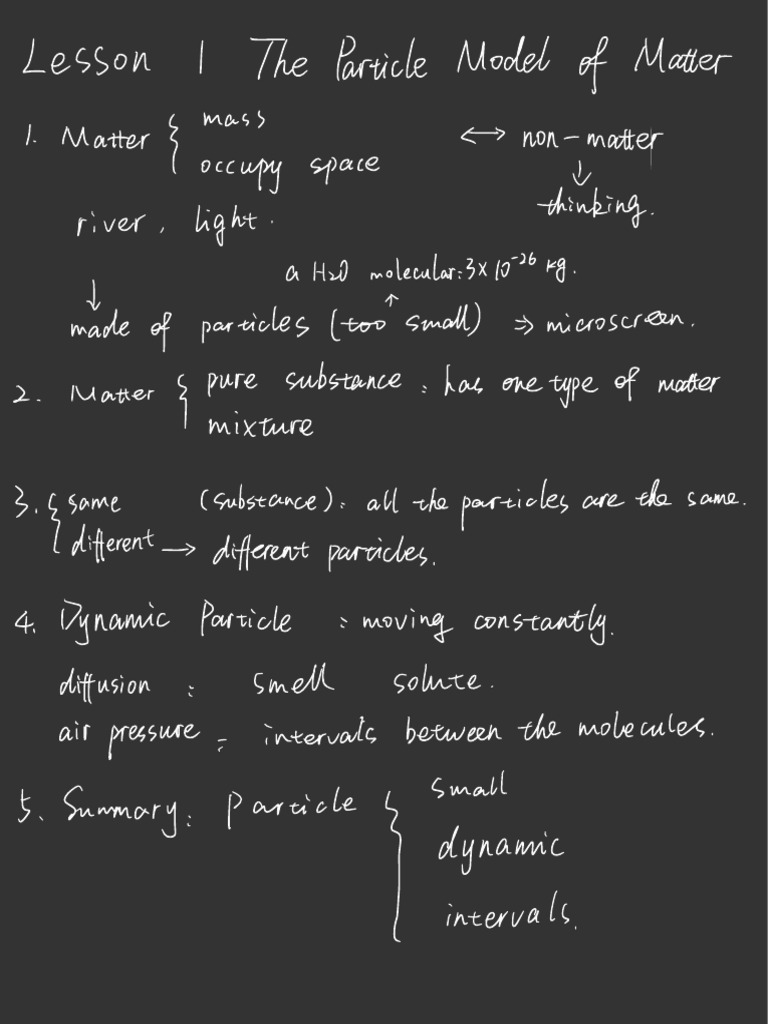 Lesson 1 The Particle Model of Matter
1. Matter { mass
occupy space
<-> non-matter
↓
thinking.
river, light.
a H2O molecular: 3×10⁻²⁶ kg.
↓ ↑
made of particles (too small) ⇒ microscreen.
2. Matter { pure substance : has one type of matter
mixture
3. { same (substance): all the particles are the same.
different → different particles.
4. Dynamic Particle : moving constantly.
diffusion : smell solute.
air pressure : intervals between the molecules.
5. Summary: Particle { small
dynamic
intervals.